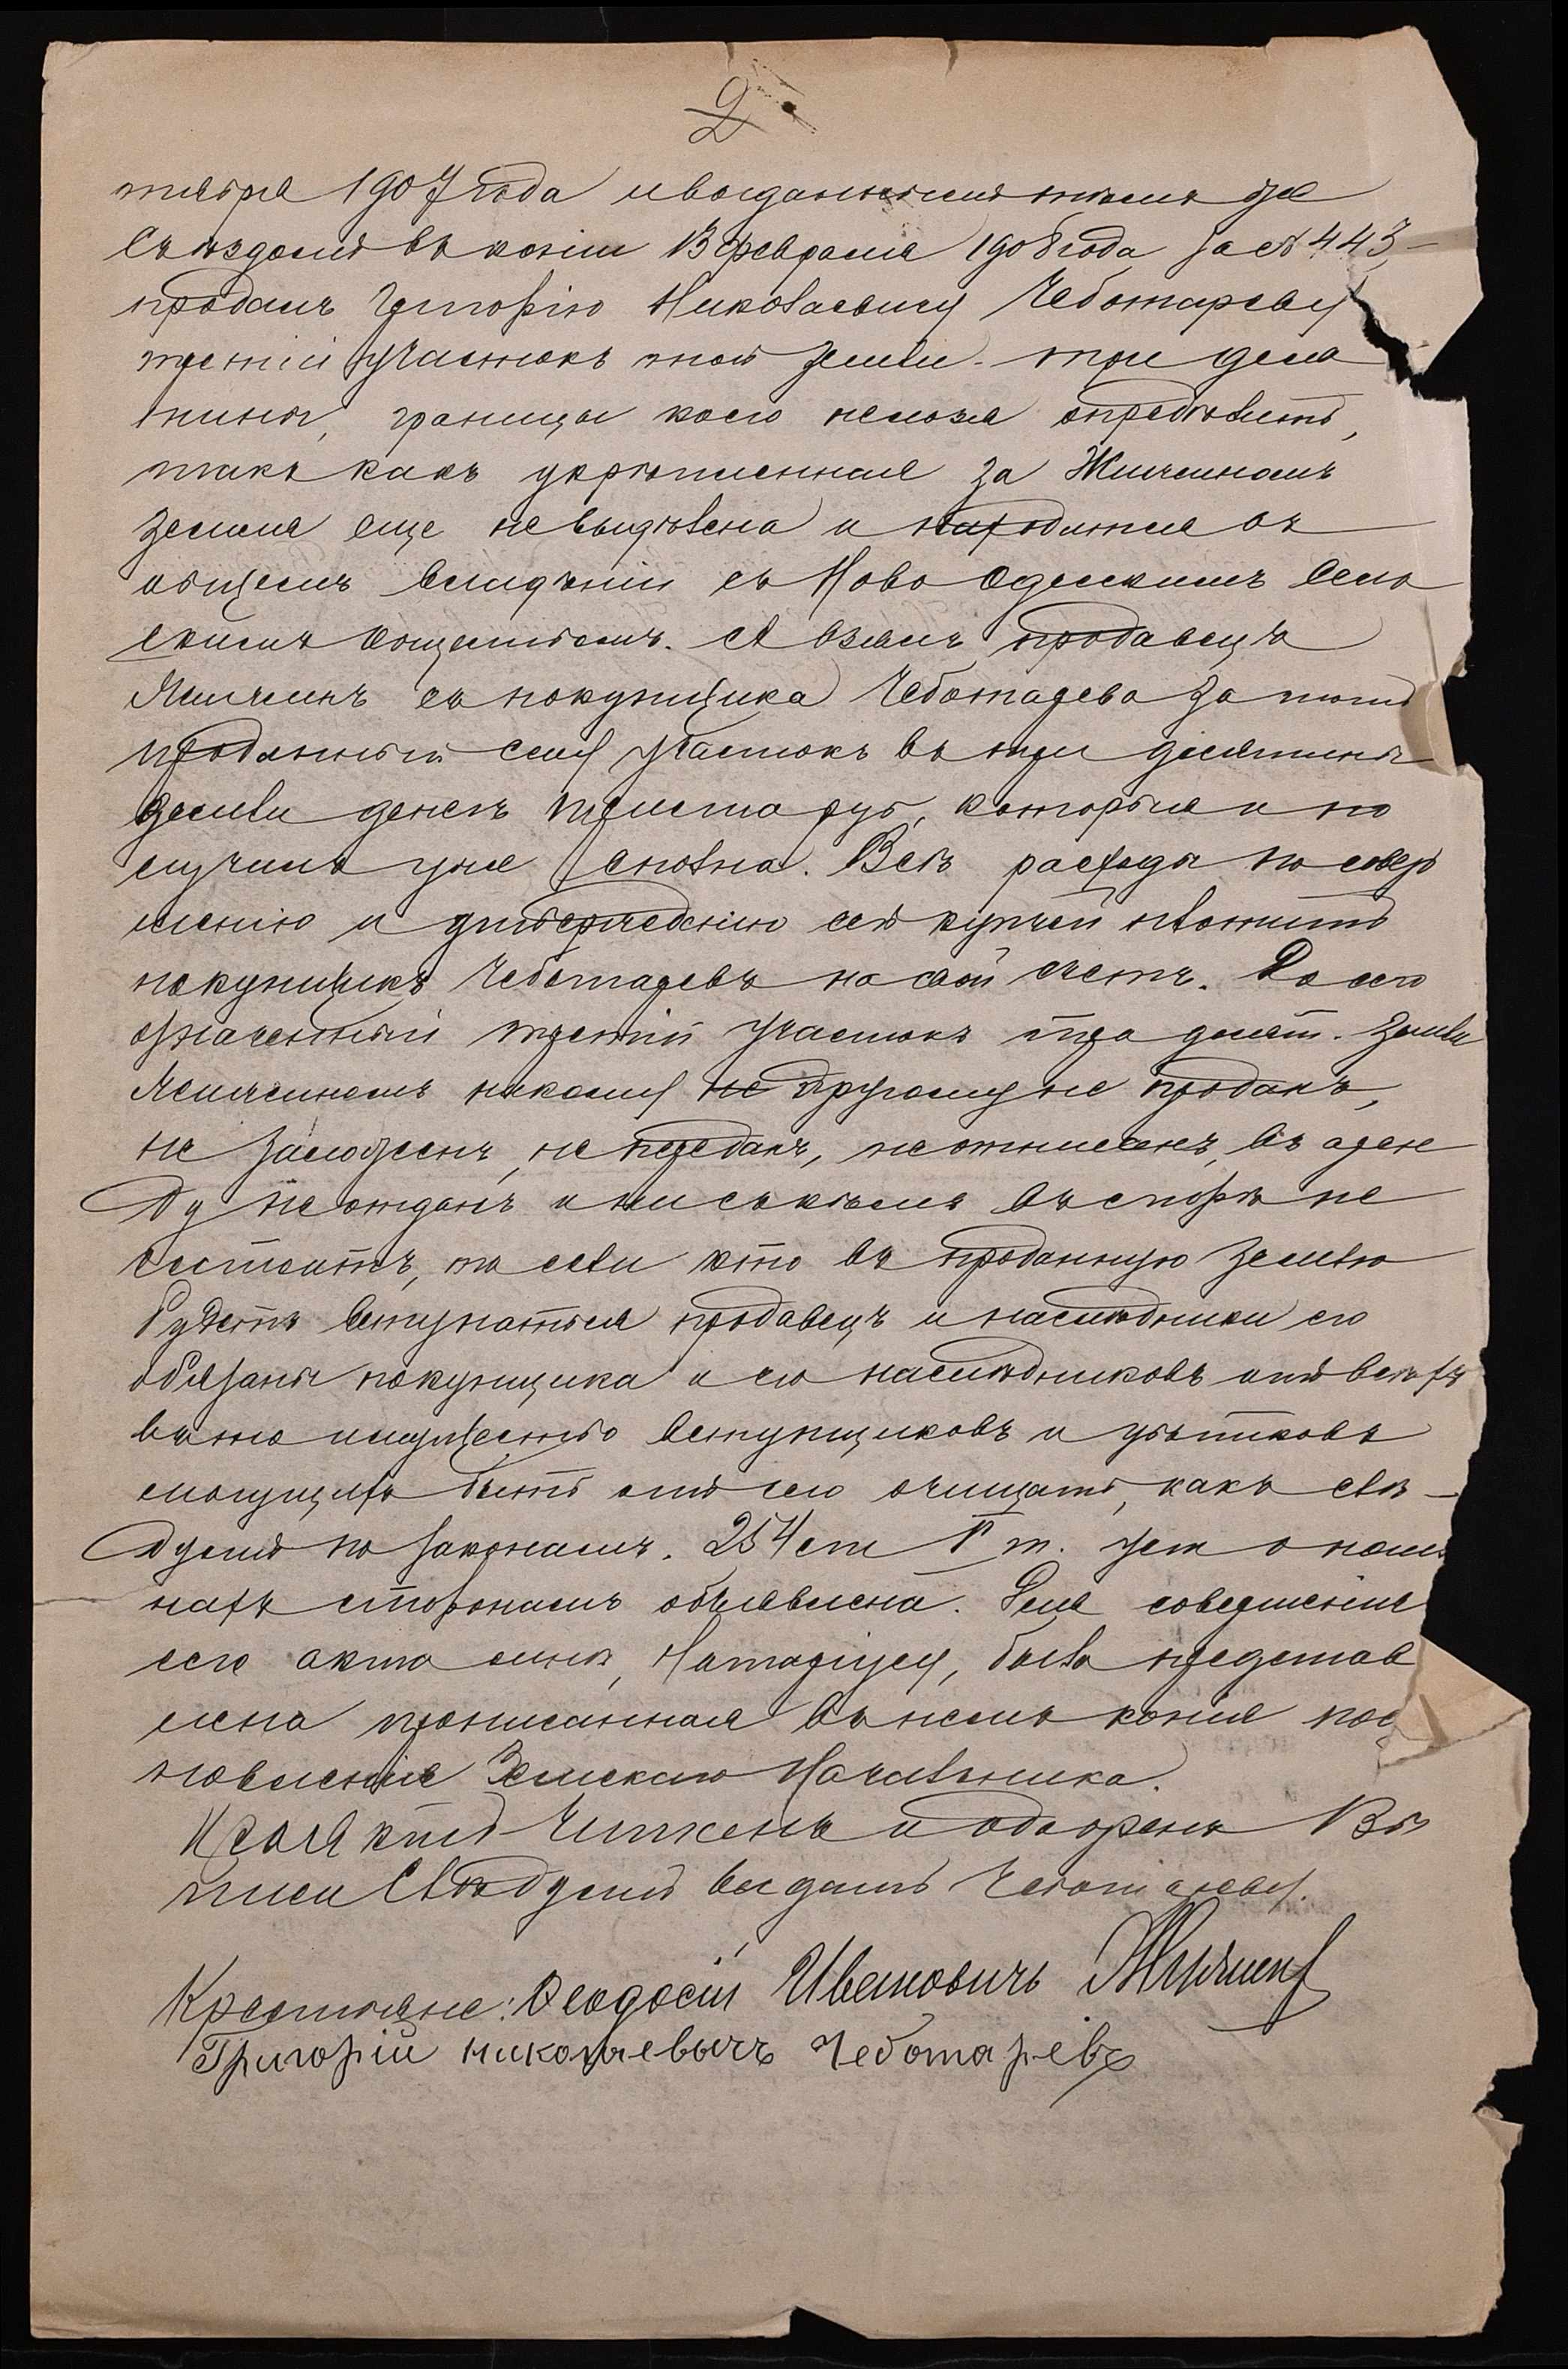 2
тября 1907 года и выданнымъ тѣмъ же
Съѣздомъ въ копіи 13 февраля 1908 года за № 443,-
продалъ Григорію Николаевичу Чеботареву
третій участокъ той земли - три деся
тины, границы коего нельзя опредѣлить,
такъ какъ укрѣпленная за Жмичинымъ
земля еще не выдѣлена и находится въ
общемъ владѣніи съ Ново Одесскимъ Сель
скимъ Обществомъ. А взялъ продавецъ
съ покупщика Чеботарева за тотъ
проданный ему участокъ въ три десятины
земли денегъ триста руб, которыя и по
лучилъ уже сполна. Всѣ расходы по совер
шенію и утвержденію сей купчей платитъ
покупщикъ Чеботаревъ на свой счетъ. До сего
означенный третій участокъ три десят. земли
никому не другому не проданъ,
не заложенъ, не переданъ, не отписанъ, въ арен
ду не отданъ и ни съ кѣмъ въ спорѣ не
состоитъ, та если кто въ проданную землю
будетъ вступаться продавецъ и наслѣдники его
обязаны покупщика и его наслѣдниковъ отъ всѣхъ
въ то имущество вступщиковъ и убытковъ
могущихъ быть отъ сего очищать, какъ слѣ-
дуетъ по законамъ. 254 ст т. о
нахъ сторонамъ объявлена. Для совершенія
сего акта мнѣ, Нотаріусу, была представ
лена прописанная въ немъ копія пос
новленія Земскаго Начальника.
актъ читанъ и одобренъ Вы
пись Слѣдуетъ выдать Чеботареву.
Крестьяне: Ѳеодосій Ивановичъ Жмичинъ
Григорій николаевычъ Чеботарёвъ